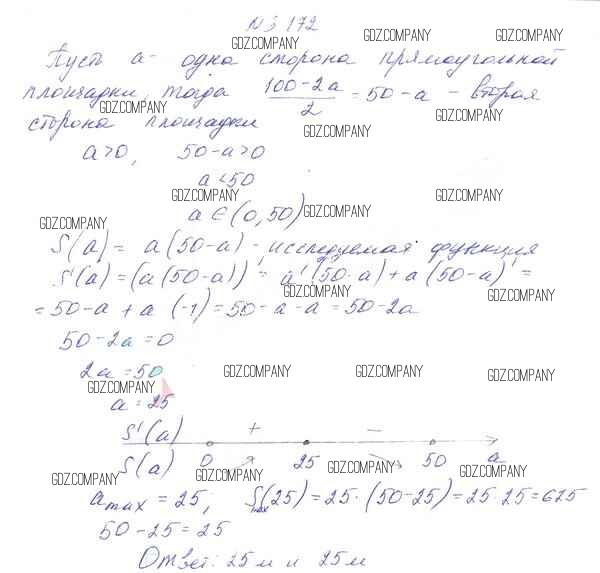 № 172
GDZ.COMPANY GDZ.COMPANY GDZ.COMPANY
Пусть a - одна сторона прямоугольной
площадки, тогда (100-2a)/2 = 50-a - вторая
GDZ.COMPANY GDZ.COMPANY
сторона площадки
GDZ.COMPANY
a>0, 50-a>0
a<50
GDZ.COMPANY GDZ.COMPANY
a∈(0,50)
GDZ.COMPANY GDZ.COMPANY
S(a) = a(50-a) - исследуемая функция
S'(a) = (a(50-a))' = a'(50-a) + a(50-a)' =
GDZ.COMPANY GDZ.COMPANY
= 50-a + a (-1) = 50-a-a = 50-2a
50-2a=0
2a=50
GDZ.COMPANY GDZ.COMPANY GDZ.COMPANY
GDZ.COMPANY
a=25
S'(a) + -
S(a) 0 25 50 a
GDZ.COMPANY GDZ.COMPANY GDZ.COMPANY GDZ.COMPANY
a max = 25; S max (25) = 25·(50-25) = 25·25 = 625
50-25=25
GDZ.COMPANY GDZ.COMPANY GDZ.COMPANY
Ответ: 25м и 25м